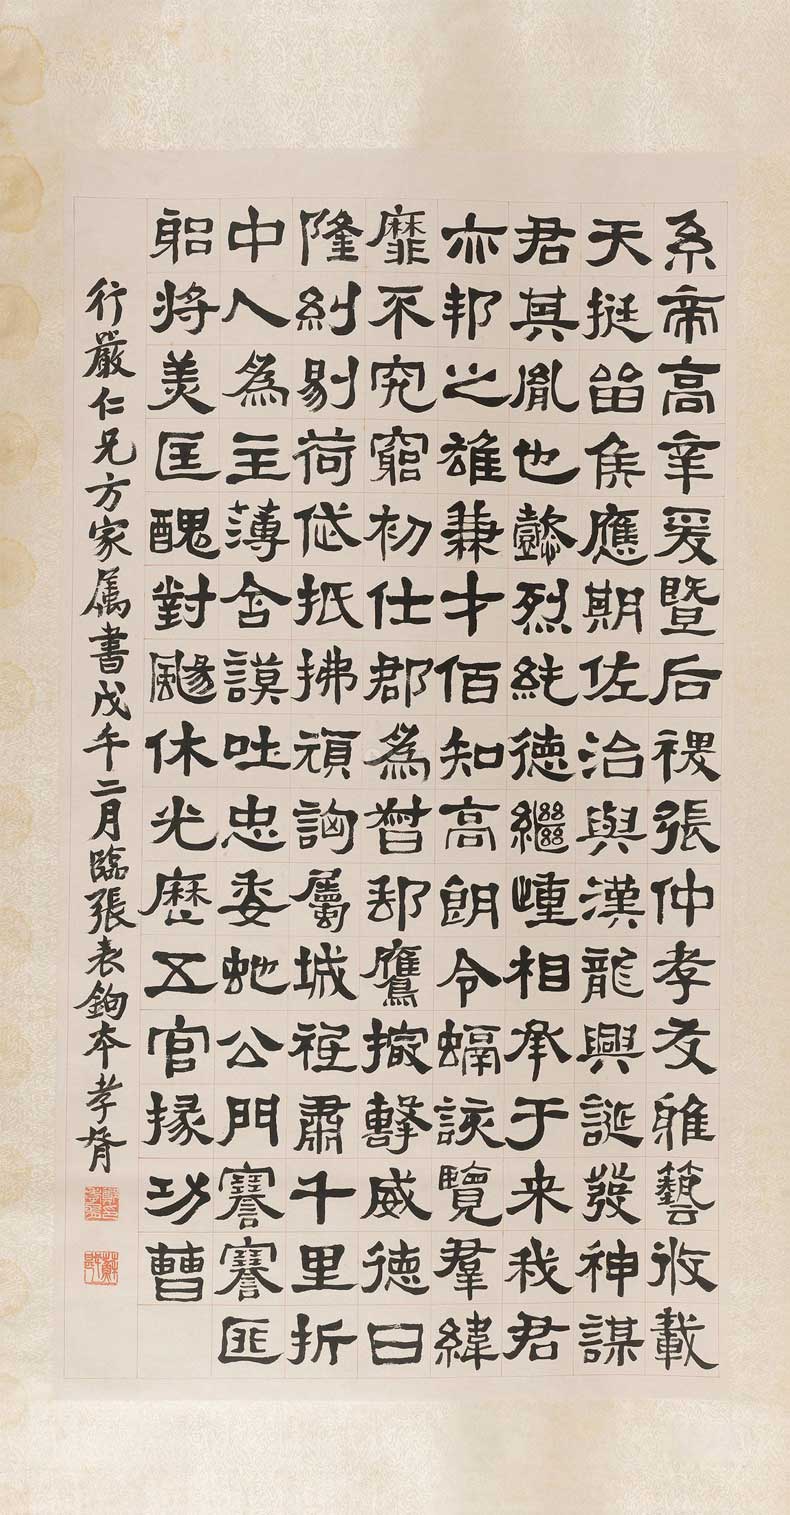 系帝高辛爰暨后稷張仲孝友雅藝攸載
天挺留侯應期佐治與漢龍興誕發神謀
君其胤也懿烈純德繼踵相承于来我君
亦邦之雄兼才佰知高朗令融該覽羣緯
靡不究窮初仕郡為督郵鷹撮擊威德日
隆糾剔荷㐲抵拂頑訩屬城祗肅千里折
中入為主薄含謨吐忠委虵公門謇謇匪
躬將美匡醜對颺休光歷五官掾功曹
行嚴仁兄方家属書戊午二月臨張表鉤本孝胥